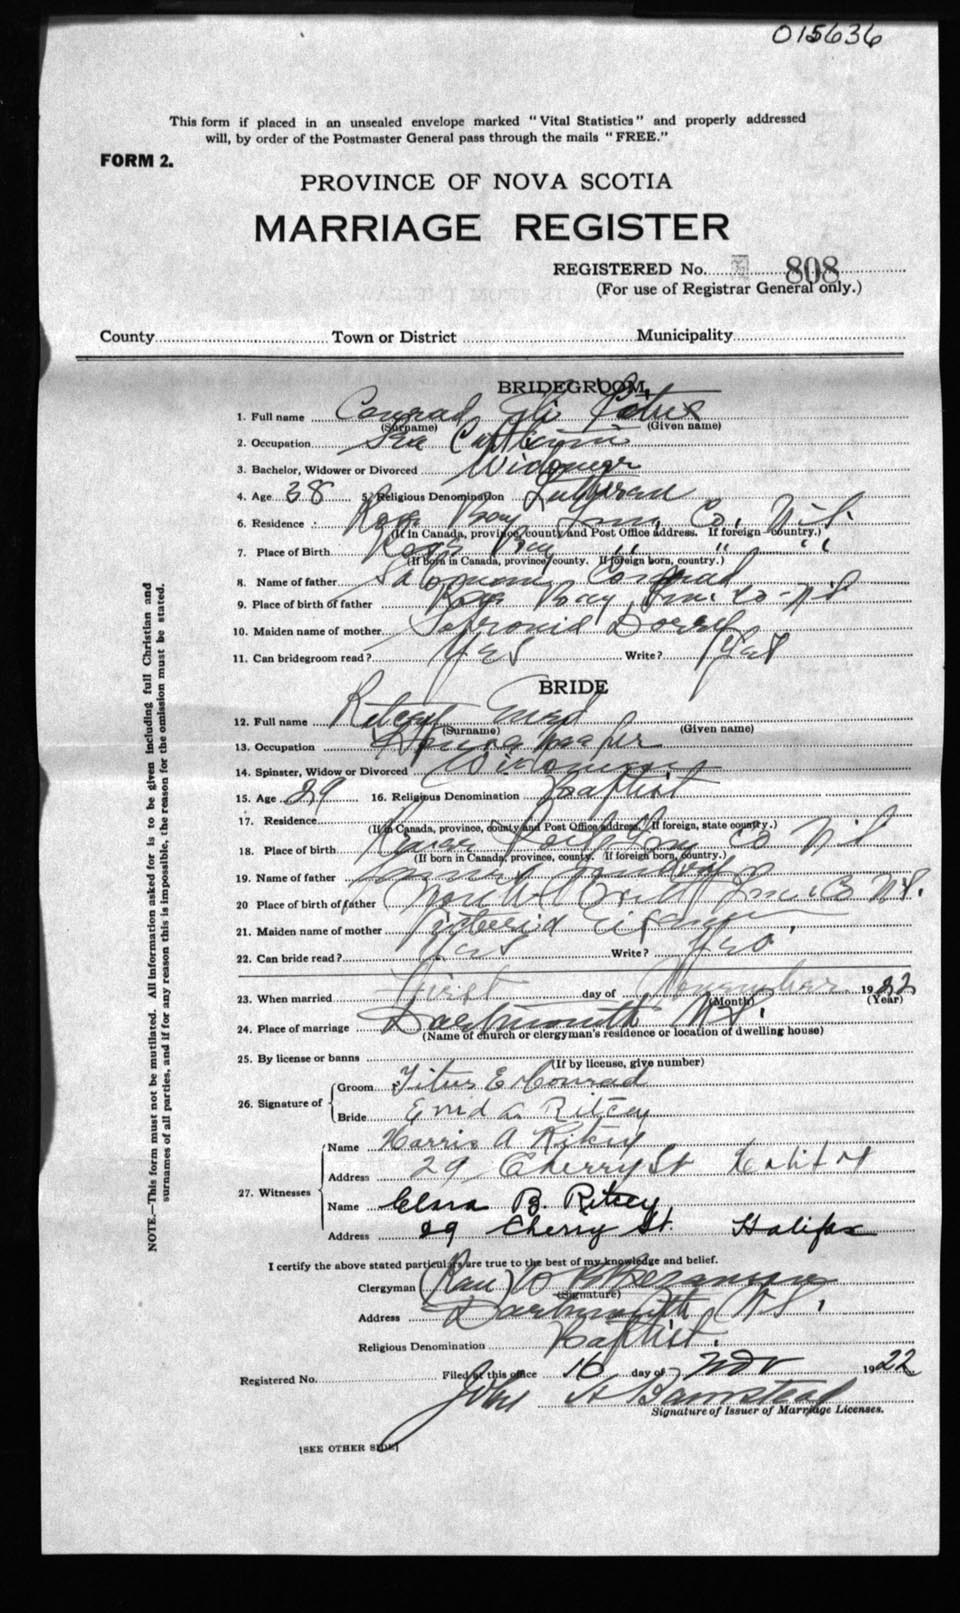 015636
This form if placed in an unsealed envelope marked "Vital Statistics" and properly addressed
will, by order of the Postmaster General pass through the mails "FREE."
FORM 2.
PROVINCE OF NOVA SCOTIA
MARRIAGE REGISTER
REGISTERED No. 808
(For use of Registrar General only.)
County Town or District Municipality
BRIDEGROOM
1. Full name Conrad
(Surname) (Given name)
2. Occupation Sea Captain
3. Bachelor, Widower or Divorced Widower
4. Age 38 5. Religious Denomination Lutheran
6. Residence Rose Bay Lun. Co. N.S.
(If in Canada, province, county and Post Office address. If foreign country.)
7. Place of Birth Rose Bay " " " "
(If born in Canada, province, county. If foreign born, country.)
8. Name of father Conrad
9. Place of birth of father Rose Bay Lun. Co - N S
10. Maiden name of mother
11. Can bridegroom read? Yes Write? Yes
BRIDE
12. Full name Ritcey Enid
(Surname) (Given name)
13. Occupation
14. Spinster, Widow or Divorced
15. Age 29 16. Religious Denomination Baptist
17. Residence
(If in Canada, province, county and Post Office address. If foreign, state country.)
18. Place of birth Co N S
(If born in Canada, province, county. If foreign born, country.)
19. Name of father
20 Place of birth of father Lun. Co N.S.
21. Maiden name of mother
22. Can bride read? Yes Write? Yes
23. When married First day of November 1922
(Month) (Year)
24. Place of marriage Dartmouth N.S.
(Name of church or clergyman's residence or location of dwelling house)
25. By license or banns
(If by license, give number)
26. Signature of Groom Titus E Conrad
Bride Enid L. Ritcey
27. Witnesses Name Harris A Ritcey
Address 29 Cherry St Halifax
Name Clara B. Ritcey
Address 29 Cherry St. Halifax
I certify the above stated particulars are true to the best of my knowledge and belief.
Clergyman
(Signature)
Address Dartmouth N.S.
Religious Denomination Baptist.
Registered No. Filed at this office 16 day of Nov 1922
John
Signature of Issuer of Marriage Licenses.
[SEE OTHER SIDE]
NOTE.—This form must not be mutilated. All information asked for is to be given including full Christian and
surnames of all parties, and if for any reason this is impossible, the reason for the omission must be stated.